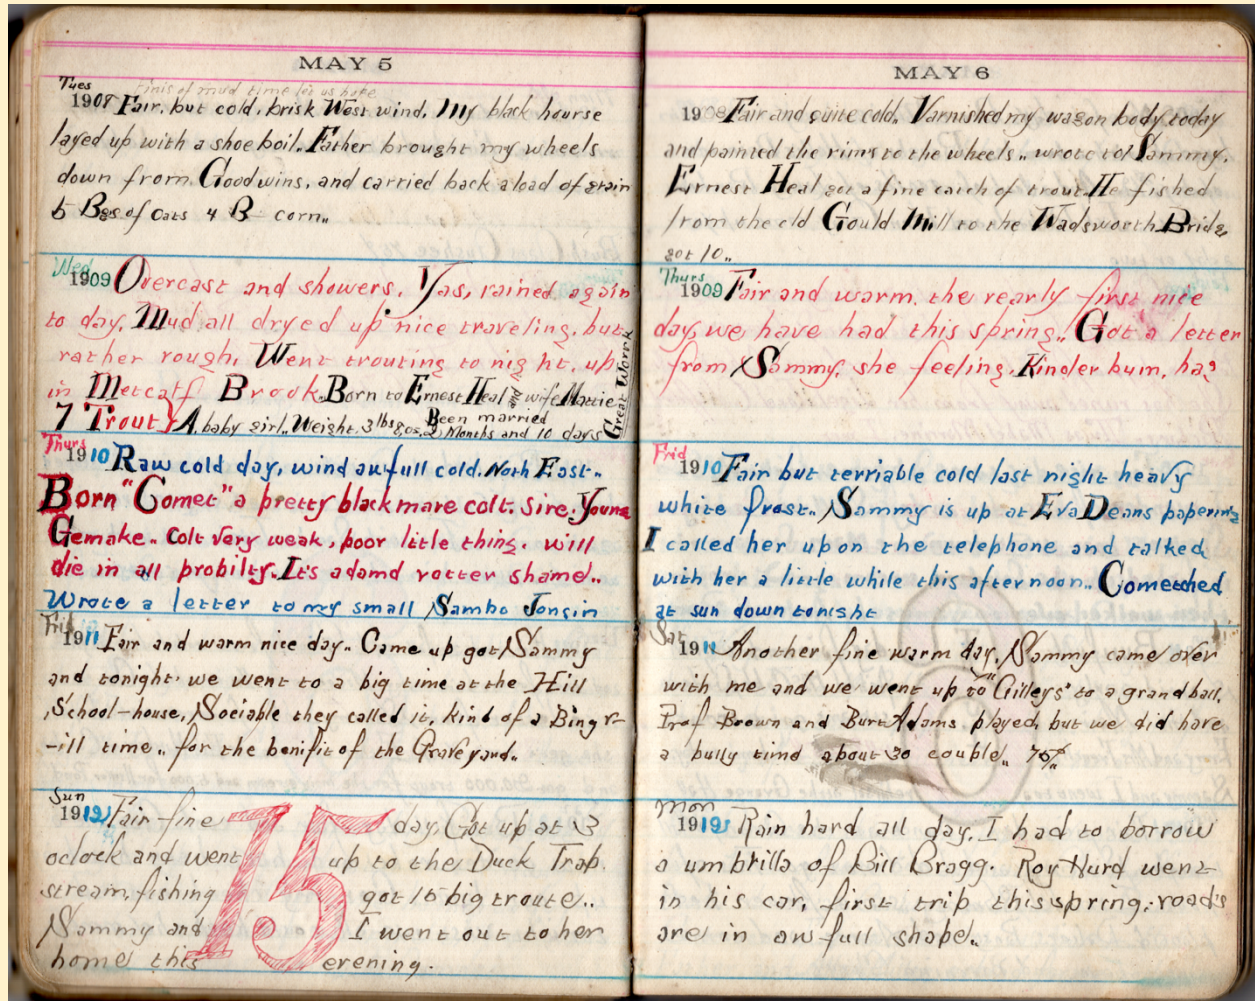 MAY 5
Tues
Finis of mud time let us hope
1908 Fair, but cold, brisk West wind. My black hourse
layed up with a shoe boil. Father brought my wheels
down from Goodwins, and carried back a load of grain
5 Bgs of Oats 4 B- corn..
Wed
1909 Overcast and showers. Yas, rained again
to day. Mud all dryed up nice traveling, but
rather rough. Went trouting to night, up
in Metcalf Brook. Born to Ernest Heal plus wife Mattie
7 Trout} A, baby girl.. Weight. 3 lbs 8, oz. Been married
2, Months and 10 days
Great Worrk
Thurs
1910 Raw cold day, wind awfull cold. North East..
Born "Comet" a pretty black mare colt. Sire. Young
Gemake.. Colt very weak, poor little thing. will
die in all probilty. It's a damd rotter shame..
Wrote a letter to my small Sambo Jonsin
Fri
1911 Fair and warm nice day.. Came up got Sammy
and tonight we went to a big time at the Hill
School-house, Sociable they called it, kind of a Bing r-
-ill time.. for the bonifit of the Graveyard..
Sun
1912 Fair fine day. Got up at 3
oclock and went up to the Duck Trap.
stream, fishing got 15 big troute..
Sammy and I went out to her
home this evening.
15
MAY 6
1908 Fair and quite cold. Varnished my wagon body today
and painted the rims to the wheels.. wrote to Sammy.
Ernest Heal got a fine catch of trout. He fished
from the old Gould Mill to the Wadsworth Bridg,
got 10..
Thurs
1909 Fair and warm. the rearly first nice
day, we have had this spring.. Got a letter
from Sammy, she feeling. Kinder bum, ha?
Frid
1910 Fair but terriable cold last night heavy
white frost.. Sammy is up at Eva Deans papering
I called her up on the telephone and talked
with her a little while this afternoon.. Comet died
at sun down tonight
Sat
1911 Another fine warm day. Sammy came over
with me and we went up to "Gilleys" to a grand ball.
Prof Brown and Burt Adams played, but we did have
a bully time about 30 couble.. 75¢
Mon
1912 Rain hard all day. I had to borrow
a umbrilla of Bill Bragg. Roy Hurd went
in his car, first trip this spring; roads
are in awfull shape..